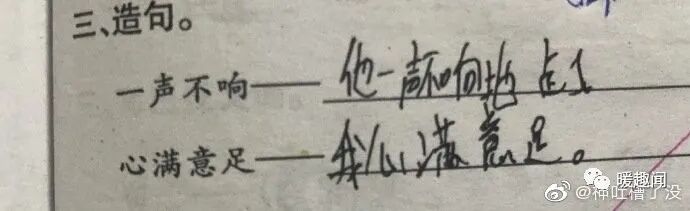 三、造句。
一声不响——他一声不响地走了
心满意足——我心满意足。
暖趣闻
@神吐槽了没